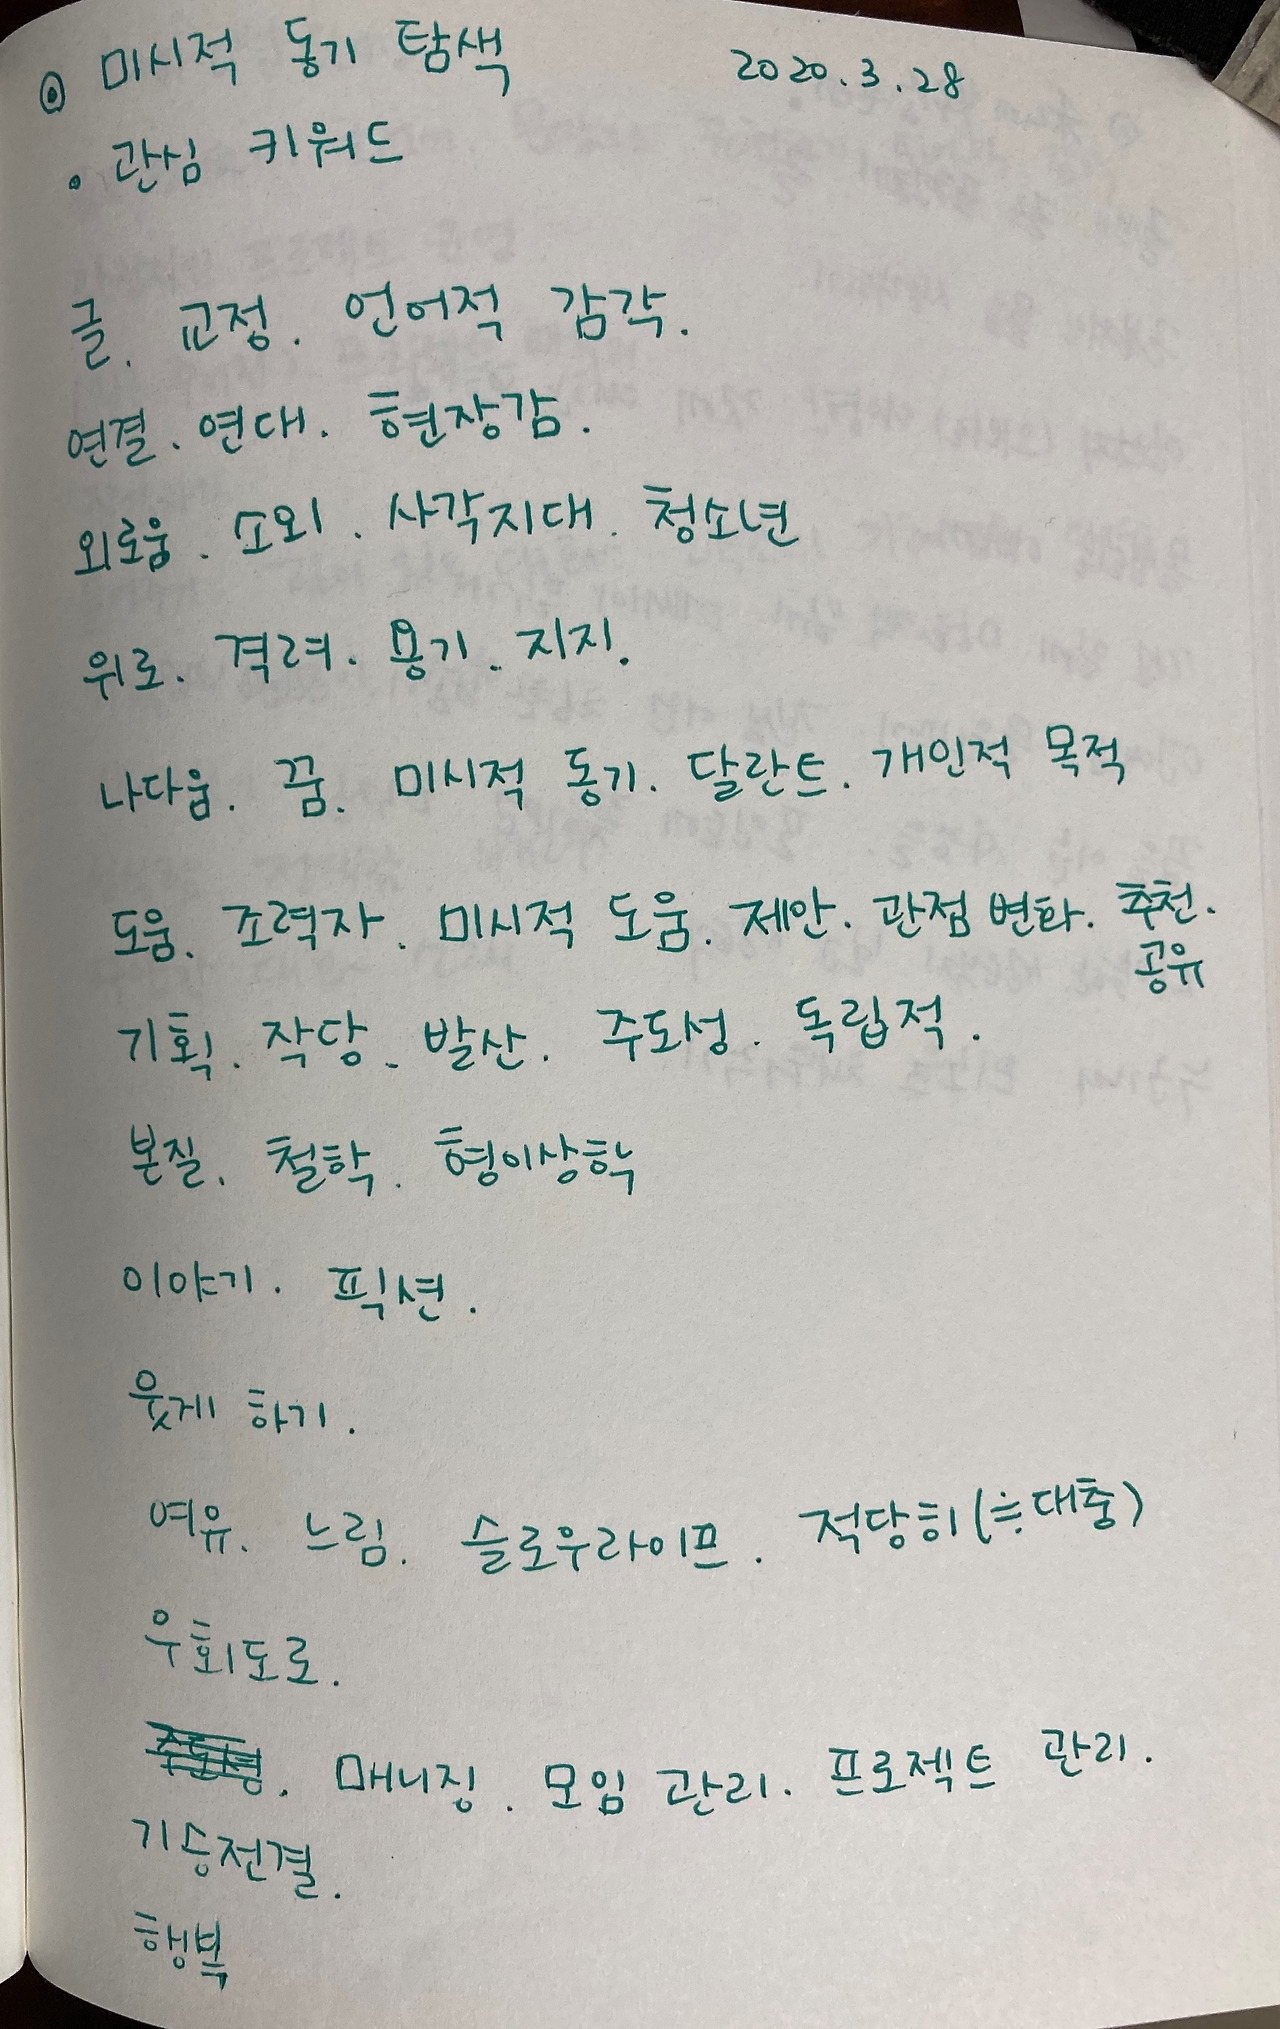 ◎ 미시적 동기 탐색 2020.3.28
• 관심 키워드
글. 교정. 언어적 감각.
연결. 연대. 현장감.
외로움. 소외. 사각지대. 청소년
위로. 격려. 용기. 지지.
나다움. 꿈. 미시적 동기. 달란트. 개인적 목적
도움. 조력자. 미시적 도움. 제안. 관점 변화. 추천.
공유
기획. 작당. 발산. 주도성. 독립적.
본질. 철학. 형이상학
이야기. 픽션.
웃게 하기.
여유. 느림. 슬로우라이프. 적당히(≒대충)
우회도로.
주도성. 매니징. 모임 관리. 프로젝트 관리.
기승전결.
행복